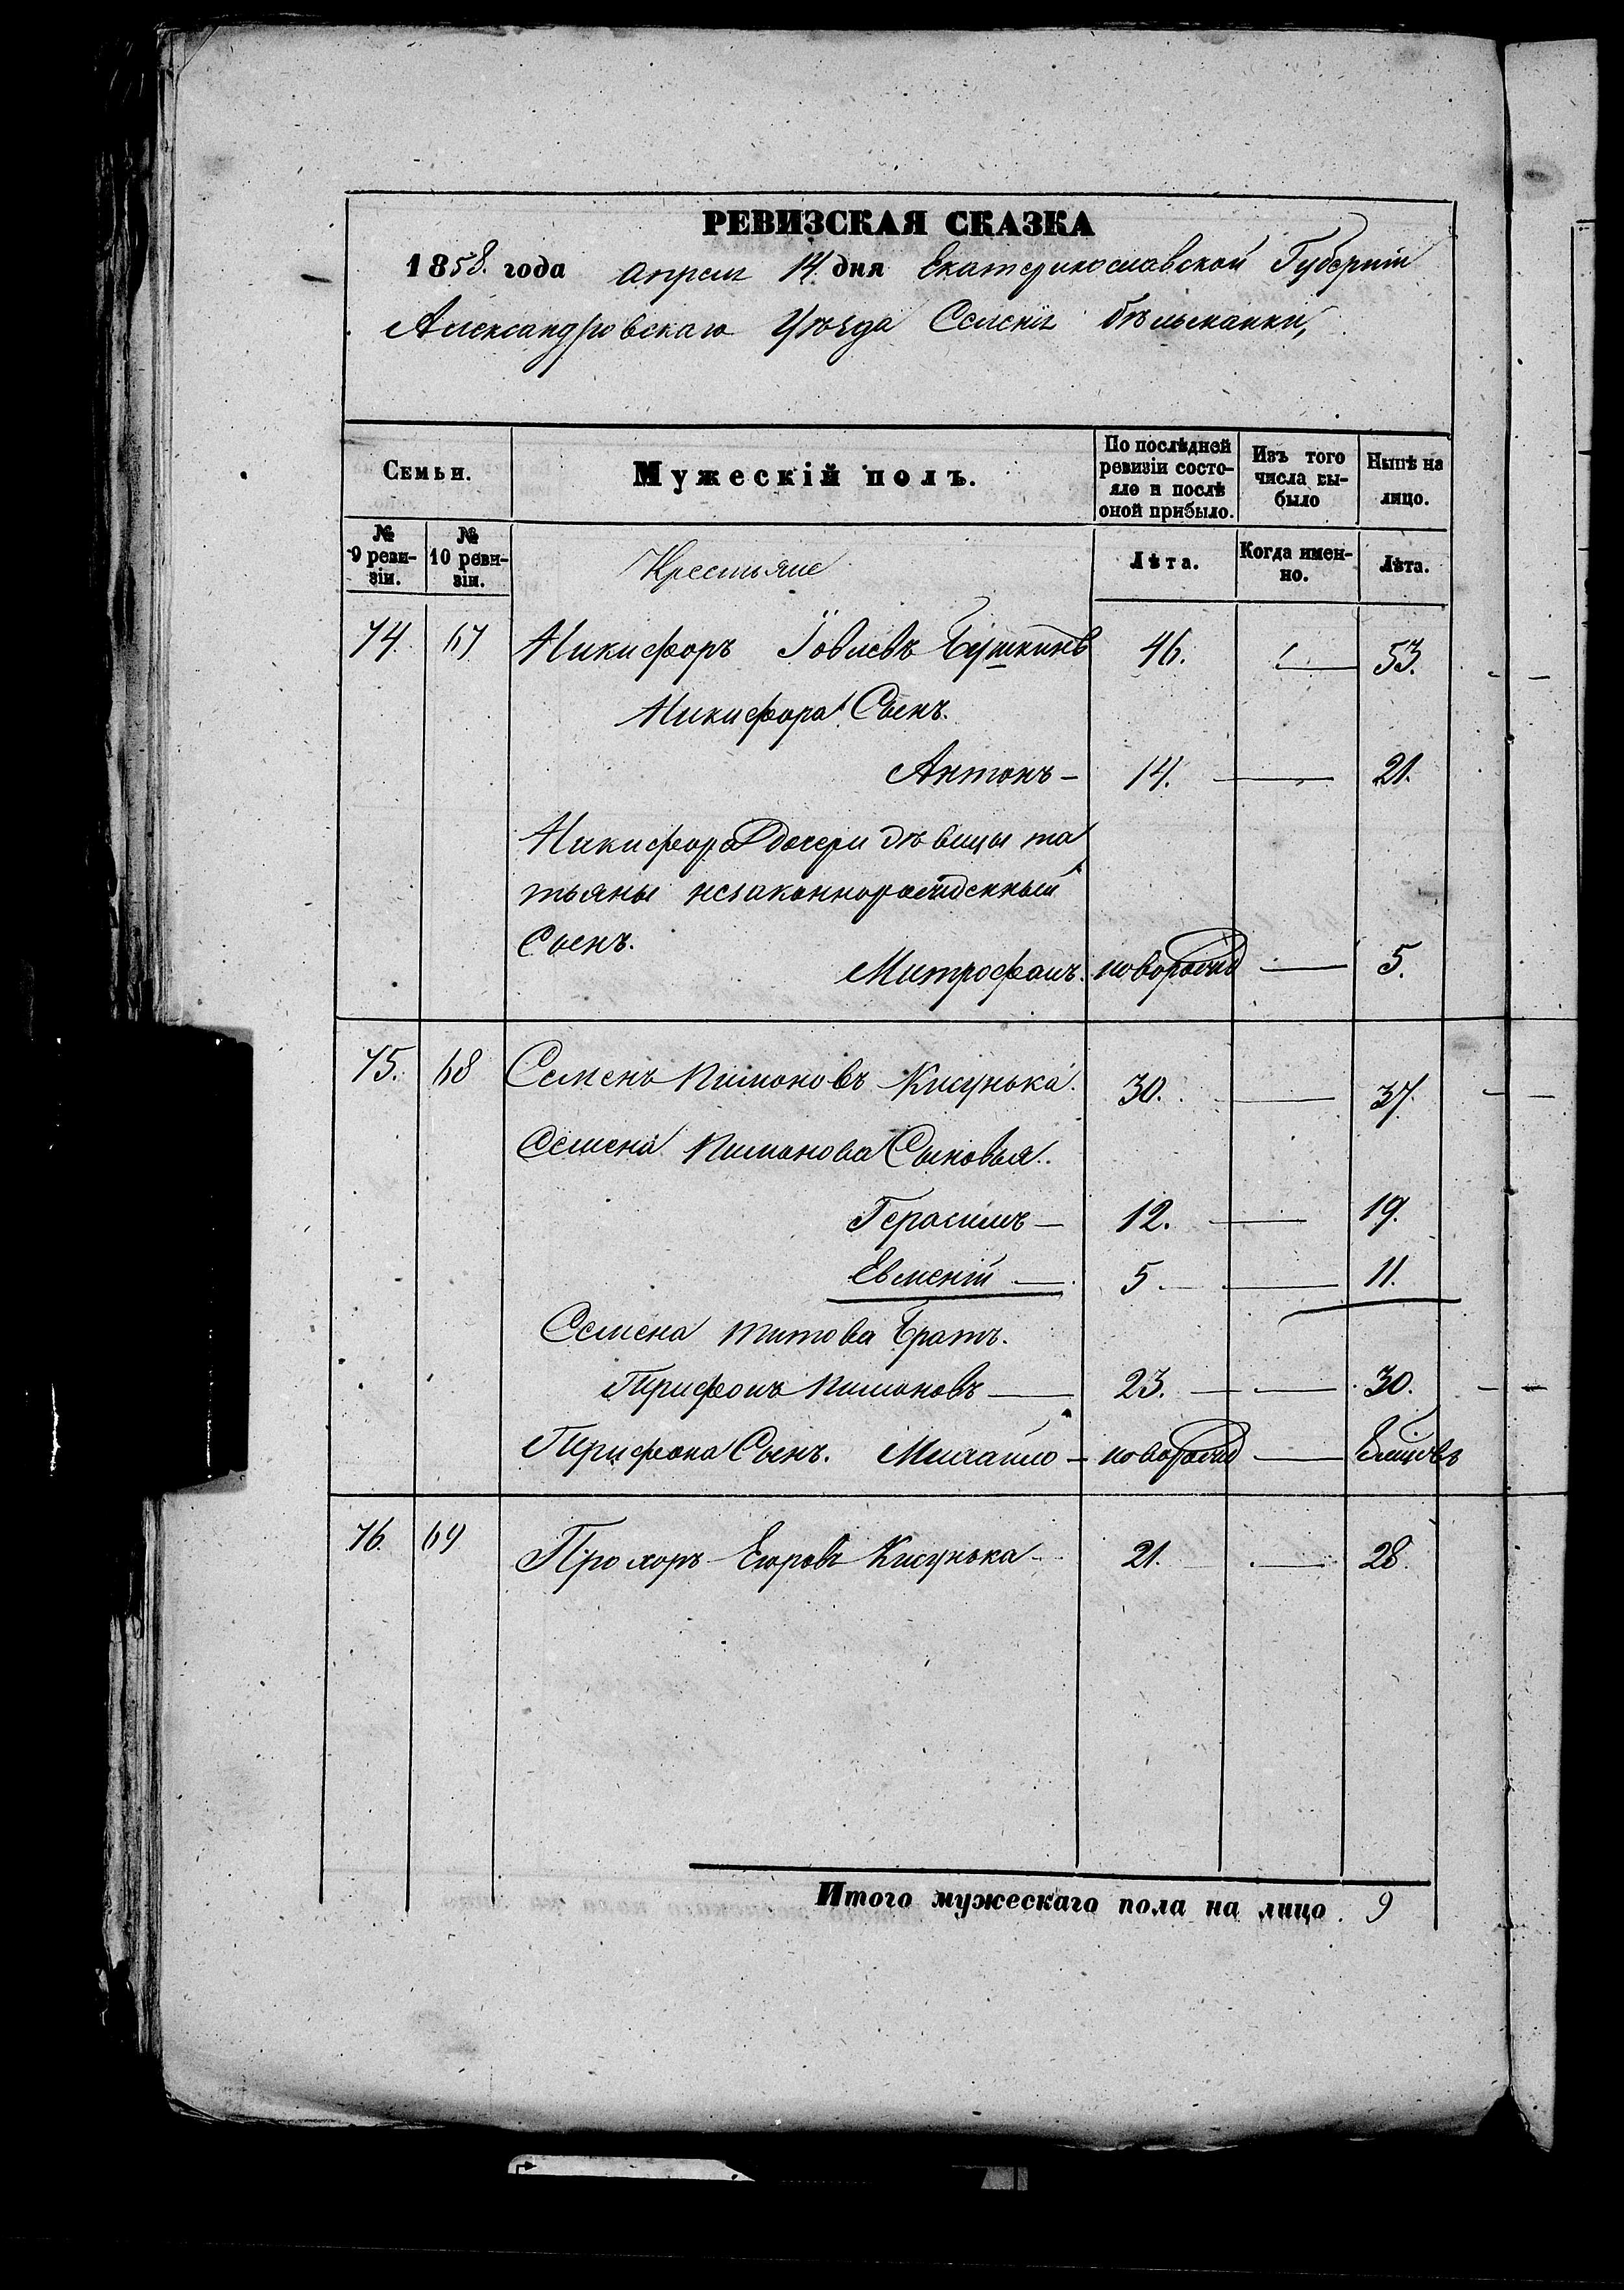 РЕВИЗСКАЯ СКАЗКА
1858. года апреля 14 дня Екатеринославской Губерніи
Александровскаго Уѣзда Селенія Бѣльманки,
Семьи.
Мужескій полъ.
По послѣдней ревизіи состояло и послѣ оной прибыло.
Изъ того числа выбыло
Нынѣ на лицо.
№ 9 ревизіи.
№ 10 ревизіи.
Крестьяне
Лѣта.
Когда именно.
Лѣта.
74. 67 Никифоръ Іовлевъ Бушкинъ 46. — 53.
Никифора Сынъ.
Антонъ – 14. — 21.
Никифора дочери дѣвицы та
тьяны незаконнорожденный
Сынъ.
Митрофанъ. новорожд — 5.
75. 68 Семенъ Пимоновъ Кисунька. 30. — 37.
Семена Пимонова Сыновья.
Герасимъ — 12. — 19.
Евменій — 5 — 11.
Семена Титова Братъ.
Трифонъ Пимоновъ — 23. — 30.
Трифона Сынъ. Михайло – новорожд —
76. 69 Прохоръ Егоровъ Кисунька – 21. — 28.
Итого мужескаго пола на лицо. 9